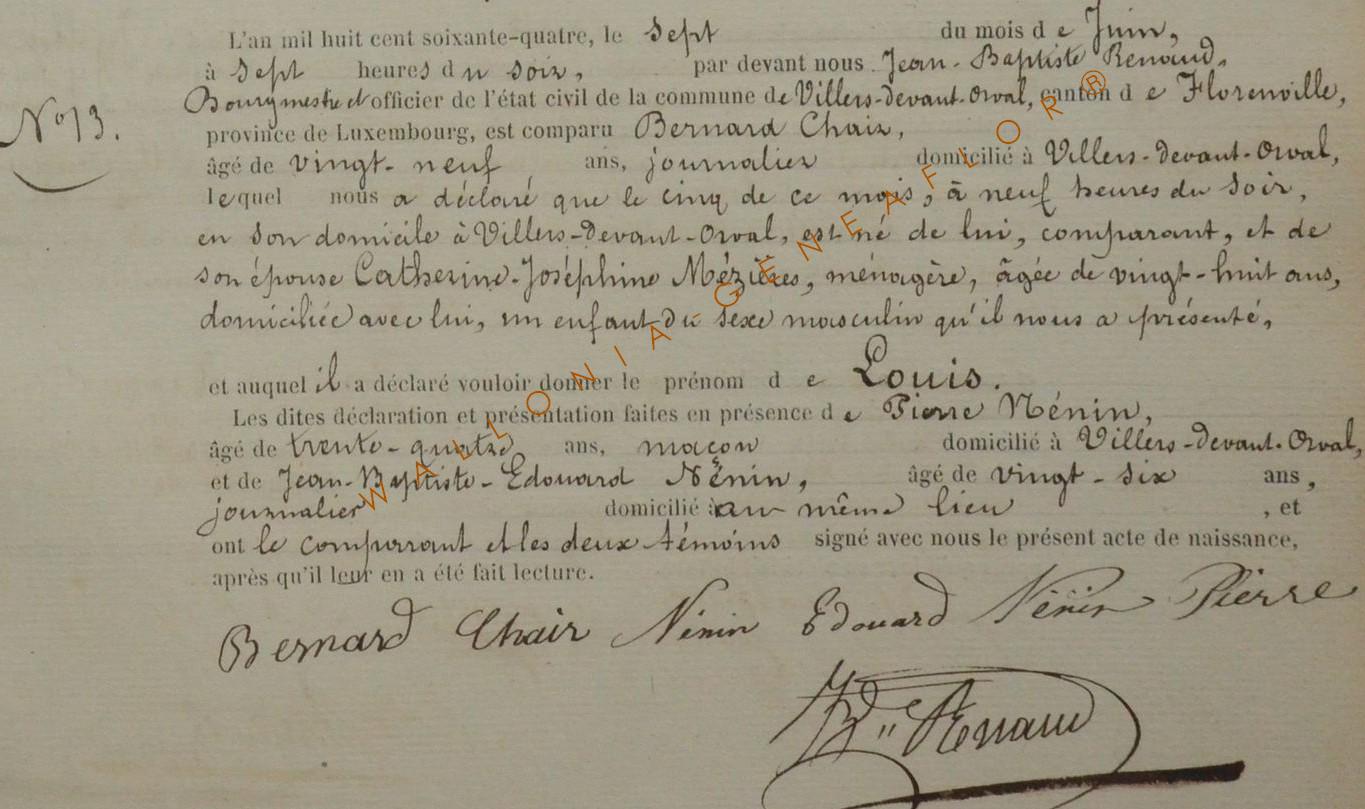 L'an mil huit cent soixante-quatre, le sept du mois de Juin,
à sept heures du soir, par devant nous Jean-Baptiste Renaud,
Bourgmestre et officier de l'état civil de la commune de Villers-devant-Orval, canton de Florenville,
N° 13.
province de Luxembourg, est comparu Bernard Chair,
âgé de vingt-neuf ans, journalier domicilié à Villers-devant-Orval,
lequel nous a déclaré que le cinq de ce mois, à neuf heures du soir,
en son domicile à Villers-devant-Orval, est né de lui, comparant, et de
son épouse Catherine-Joséphine Mézières, ménagère, âgée de vingt-huit ans,
domiciliée avec lui, un enfant du sexe masculin qu'il nous a présenté,
et auquel il a déclaré vouloir donner le prénom de Louis.
Les dites déclaration et présentation faites en présence de Pierre Nénin,
âgé de trente-quatre ans, maçon domicilié à Villers-devant-Orval,
et de Jean-Baptiste-Edouard Nénin, âgé de vingt-six ans,
journalier domicilié à au même lieu, et
ont le comparant et les deux témoins signé avec nous le présent acte de naissance,
après qu'il leur en a été fait lecture.
Bernard Chair Nénin Edouard Nénin Pierre
JBte Renaud
WALLONIA-GENEAFLOR®